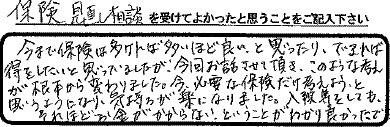 保険見直し相談を受けてよかったと思うことをご記入下さい
今まで保険は多ければ多いほど良い、と思ったり、できれば
得をしたいと思っていましたが、今回お話させて頂き、このような考え
が根本から変わりました。今、必要な保険だけ考えよう、と
思うようになり、気持ちが楽になりました。入院等をしても、
それほどお金がかからない、ということがわかり良かったで